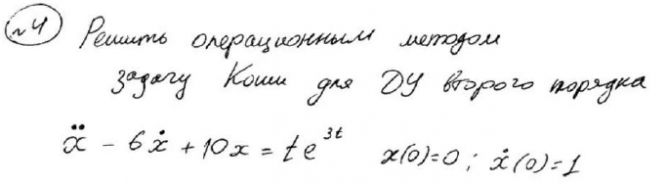 №4 Решить операционным методом
задачу Коши для ДУ второго порядка
ẍ - 6ẋ + 10x = te^{3t} x(0)=0; ẋ(0)=1